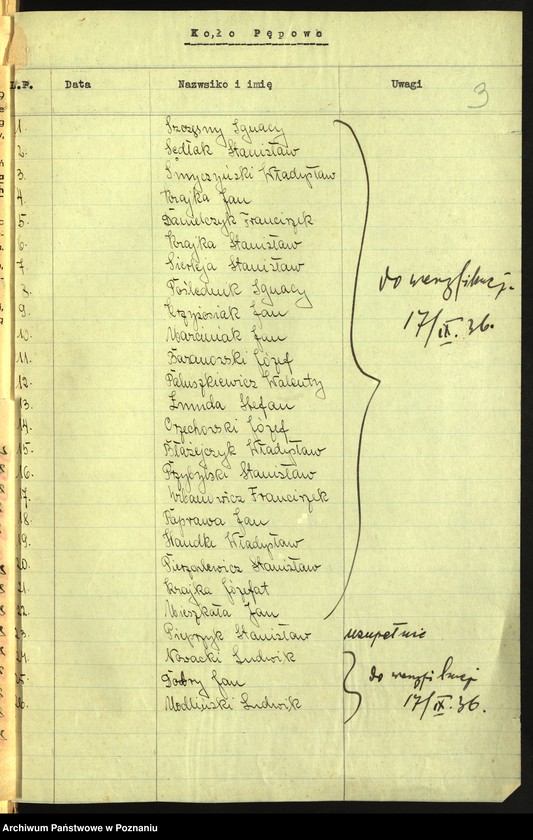 Koło Pępowo
L.P. Data Nazwsiko i imię Uwagi
3
1. Szczęsny Ignacy
2. Sedlak Stanisław
3. Smyczyński Władysław
4. Krajka Jan
5. Danielczyk Franciszek
6. Krajka Stanisław
7. Sierkja Stanisław
8. Poślednik Ignacy
9. Krzyżosiak Jan
do weryfikacji.
17/IX.36.
10. Marciniak Jan
11. Baranowski Józef
12. Paluszkiewicz Walenty
13. Żmuda Stefan
14. Orzechowski Józef
15. Błażejczyk Władysław
16. Przybylski Stanisław
17. Urbanowicz Franciszek
18. Paprawa Jan
19. Handke Władysław
20. Stanisław
21. Krajka Józefat
22. Mieszkała Jan
23. Pieprzyk Stanisław uzupełnić
24. Nowacki Ludwik
25. Dobry Jan
26. Modliński Ludwik
do weryfikacji
17/IX.36.
Archiwum Państwowe w Poznaniu